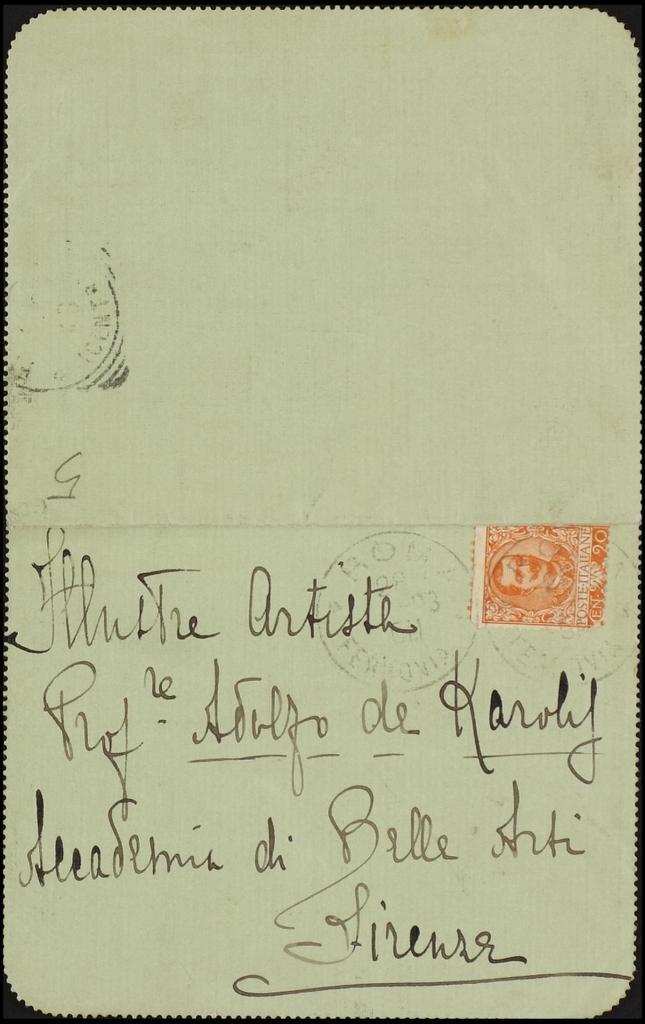 5
ROMA
FERROVIA
POSTE ITALIANE
20
Illustre Artista
Prof.re Adolfo de Karolis
Accademia di Belle Arti
Firenze